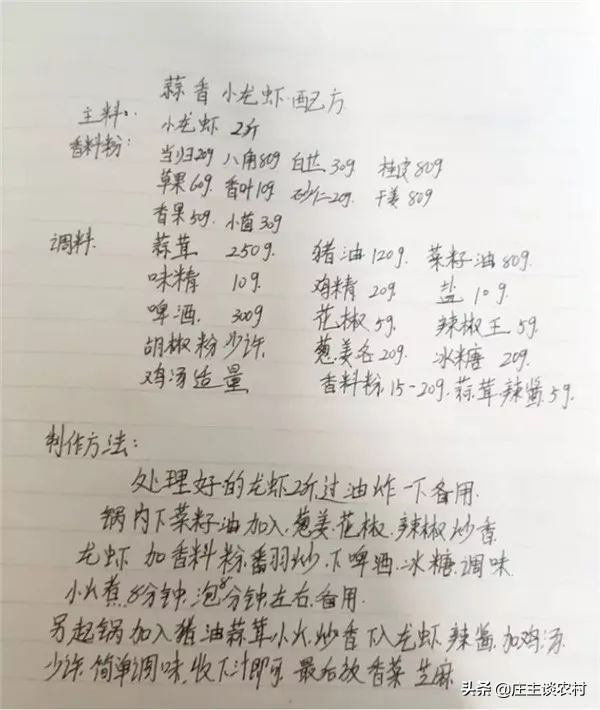 蒜香小龙虾配方
主料: 小龙虾 2斤
香料粉:
当归20g 八角80g 白芷30g 桂皮80g
草果60g 香叶10g 砂仁20g 干姜80g
香果50g 小茴30g
调料 蒜茸 250g 猪油120g 菜籽油80g
味精 10g 鸡精 20g 盐10g
啤酒 300g 花椒5g 辣椒王5g
胡椒粉少许 葱姜各20g 冰糖 20g
鸡汤适量 香料粉15-20g 蒜茸辣酱5g
制作方法:
处理好的龙虾2斤过油炸一下备用
锅内下菜籽油加入葱姜花椒辣椒炒香
龙虾加香料粉翻炒下啤酒冰糖调味
小火煮8分钟泡8分钟左右备用
另起锅加入猪油蒜茸小火炒香下入龙虾辣酱加鸡汤
少许简单调味,收下汁即可 最后放香菜芝麻
头条 @庄主谈农村